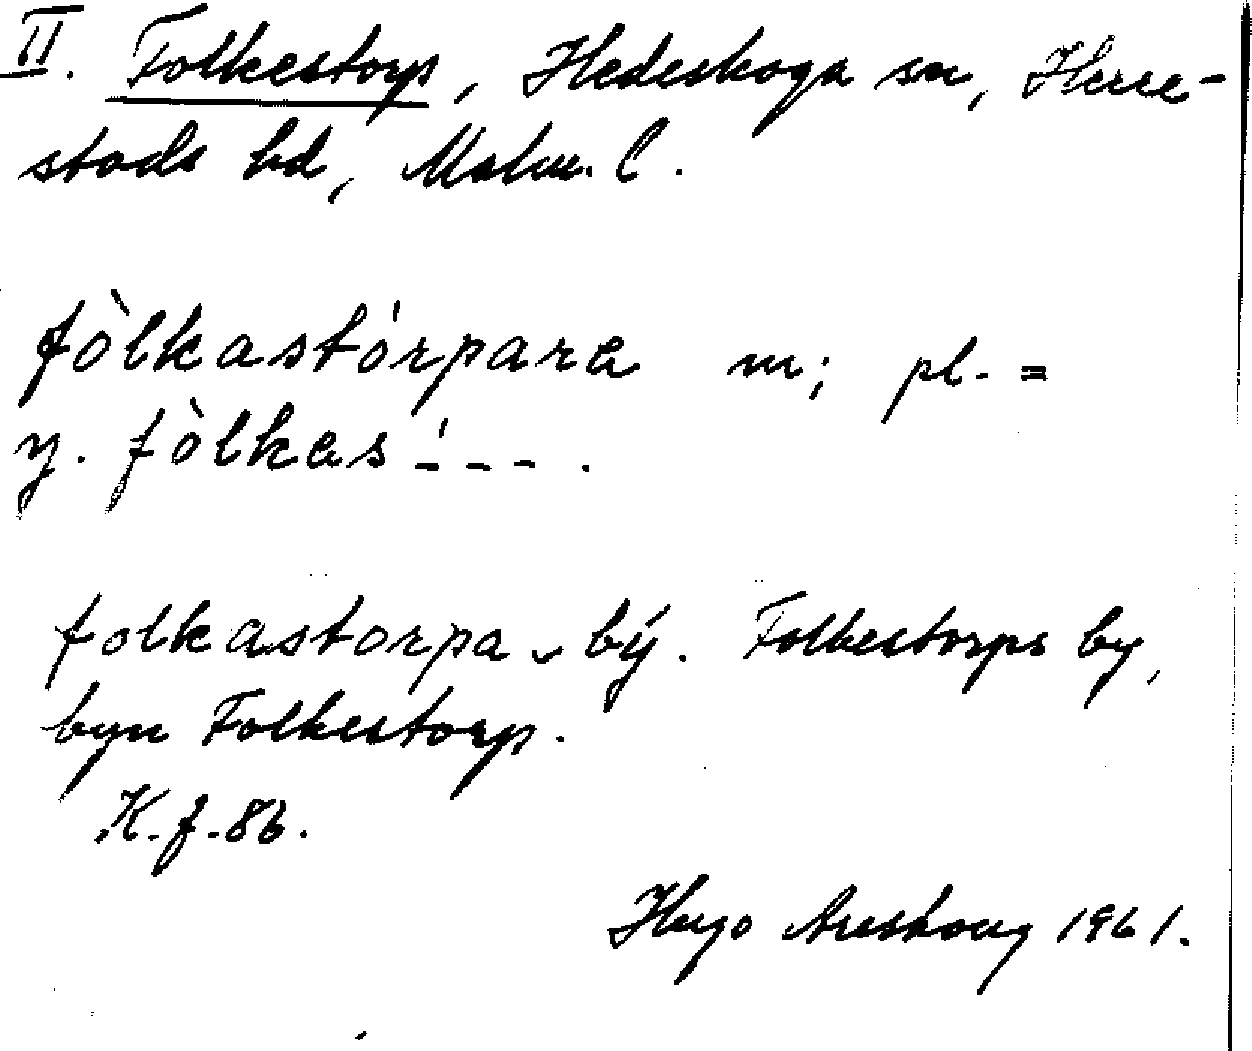 II. Folkestorp, Hedeskoga sn, Herre-
stads hd, Malm. l.
fòlkastórpara m; pl. =
y. fòlkas-́ - - - .
folkastorpa ⌣ bý. Folkestorps by,
byn Folkestorp.
K. f. 86.
Hugo Areskoug 1961.